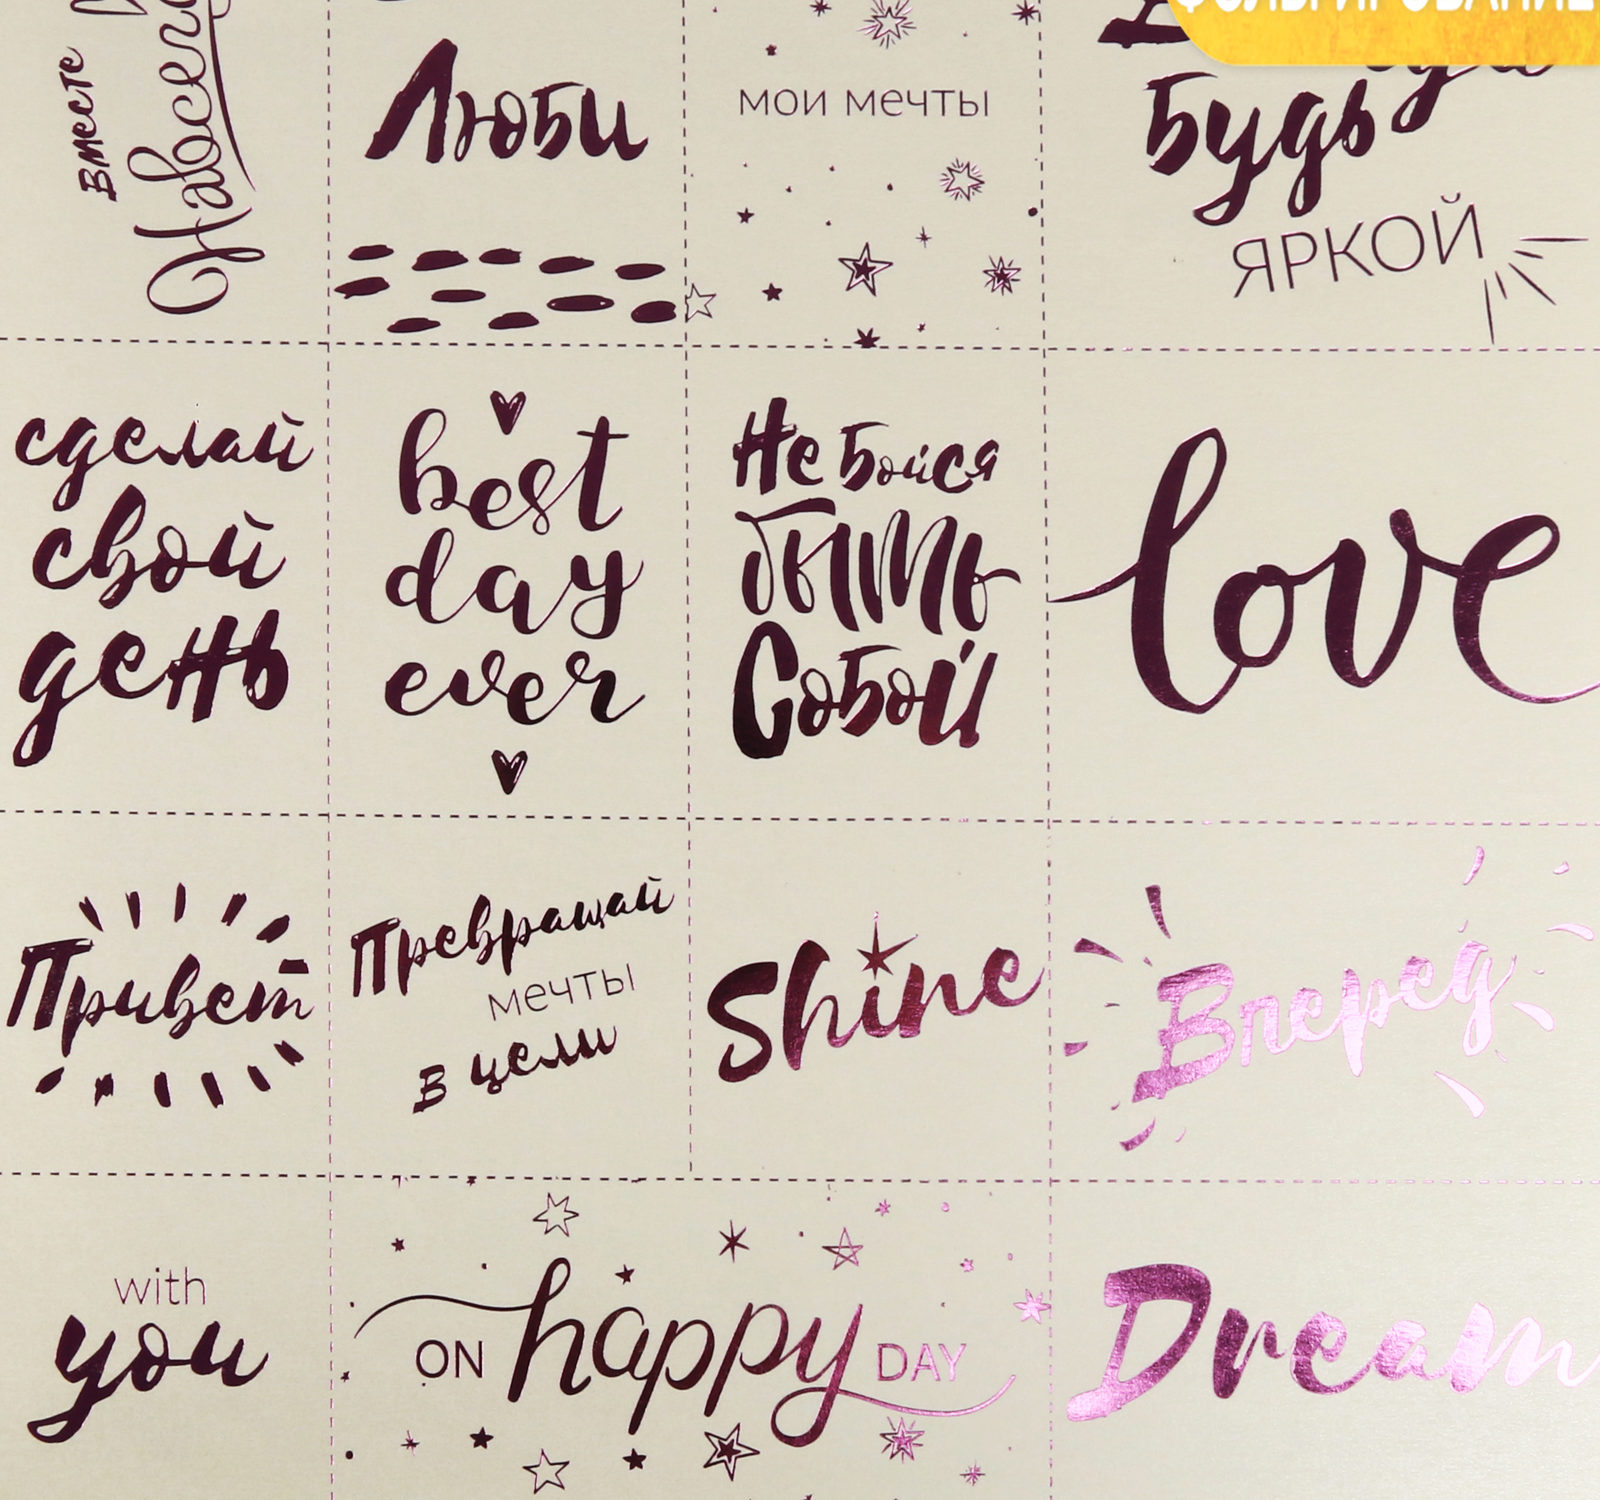 ФОЛЬГИРОВАНИЕ
Вместе
Люби
мои мечты
Будь
ЯРКОЙ
сделай
свой
день
best
day
ever
Не бойся
быть
Собой
love
Привет
Превращай
мечты
в цели
Shine
Вперед
with
you
ON happy DAY
Dream